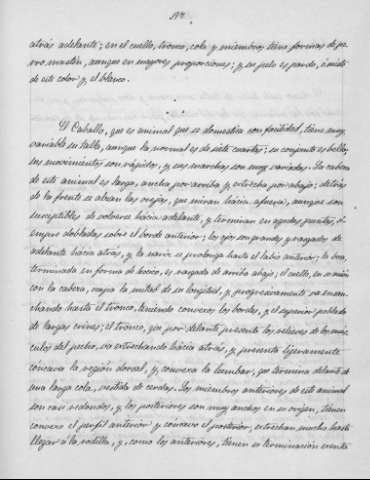 atrás adelante; en el cuello, tronco, cola y miembros tiene formas de pe-
rro mastín, aunque en mayores proporciones; y su pelo es pardo, ó mixto
de este color y el blanco.
El Caballo, que es animal que se domestica con facilidad, tiene muy
variable su talla, aunque la normal es de siete cuartas; su conjunto es bello,
sus movimientos son rápidos, y sus marchas son muy variadas. La cabeza
de este animal es larga, ancha por arriba y estrecha por abajo; detrás
de la frente se alzan las orejas, que miran hacia afuera, aunque son
susceptibles de volverse hacia adelante, y terminan en agudas puntas, si-
empre dobladas sobre el borde anterior; los ojos son grandes y rasgados de
adelante hacia atrás, y la nariz se prolonga hasta el labio anterior; la boca,
terminada en forma de hocico, es rasgada de arriba abajo; el cuello, en su unión
con la cabeza, ocupa la mitad de su longitud, y progresivamente va ensan-
chando hasta el tronco, teniendo convexos los bordes, y el superior poblado
de largas crines; el tronco, que por delante presenta los relieves de los mús-
culos del pecho, va estrechando hacia atrás, y presenta ligeramente
cóncava la región dorsal, y convexa la lumbar, que termina delante de
una larga cola, vestida de cerdas. Los miembros anteriores de este animal
son casi redondos, y los posteriores son muy anchos en su origen, tienen
convexo el perfil anterior y cóncavo el posterior, estrechan mucho hasta
llegar á la rodilla, y, como los anteriores, tienen su terminación